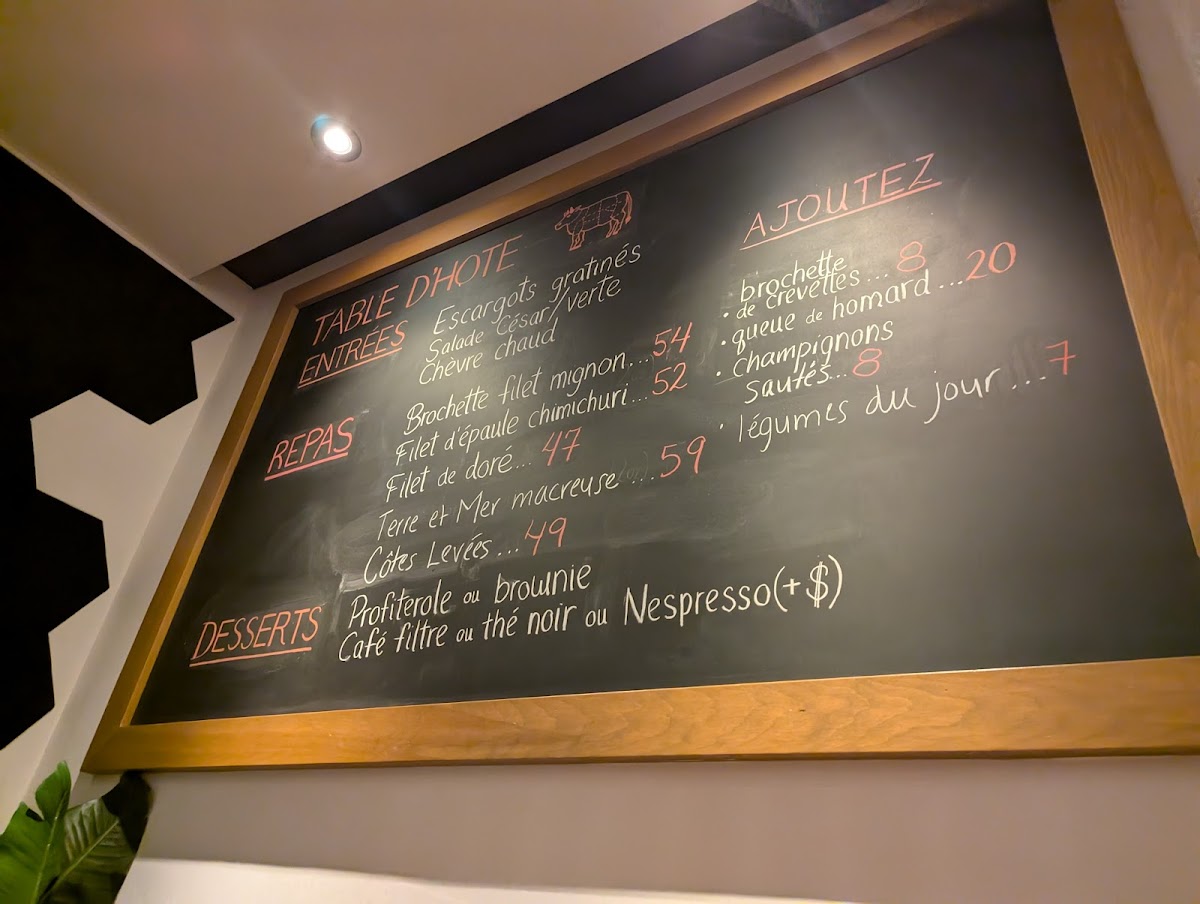 TABLE D'HOTE
ENTRÉES
Escargots gratinés
Salade César/verte
Chèvre chaud
REPAS
Brochette filet mignon....54
Filet d'épaule chimichuri...52
Filet de doré... 47
Terre et Mer macreuse ....59
Côtes Levées...49
DESSERTS
Profiterole ou brownie
Café filtre ou thé noir ou Nespresso(+$)
AJOUTEZ
• brochette
de crevettes...8
• queue de homard...20
• champignons
sautés...8
• légumes du jour....7